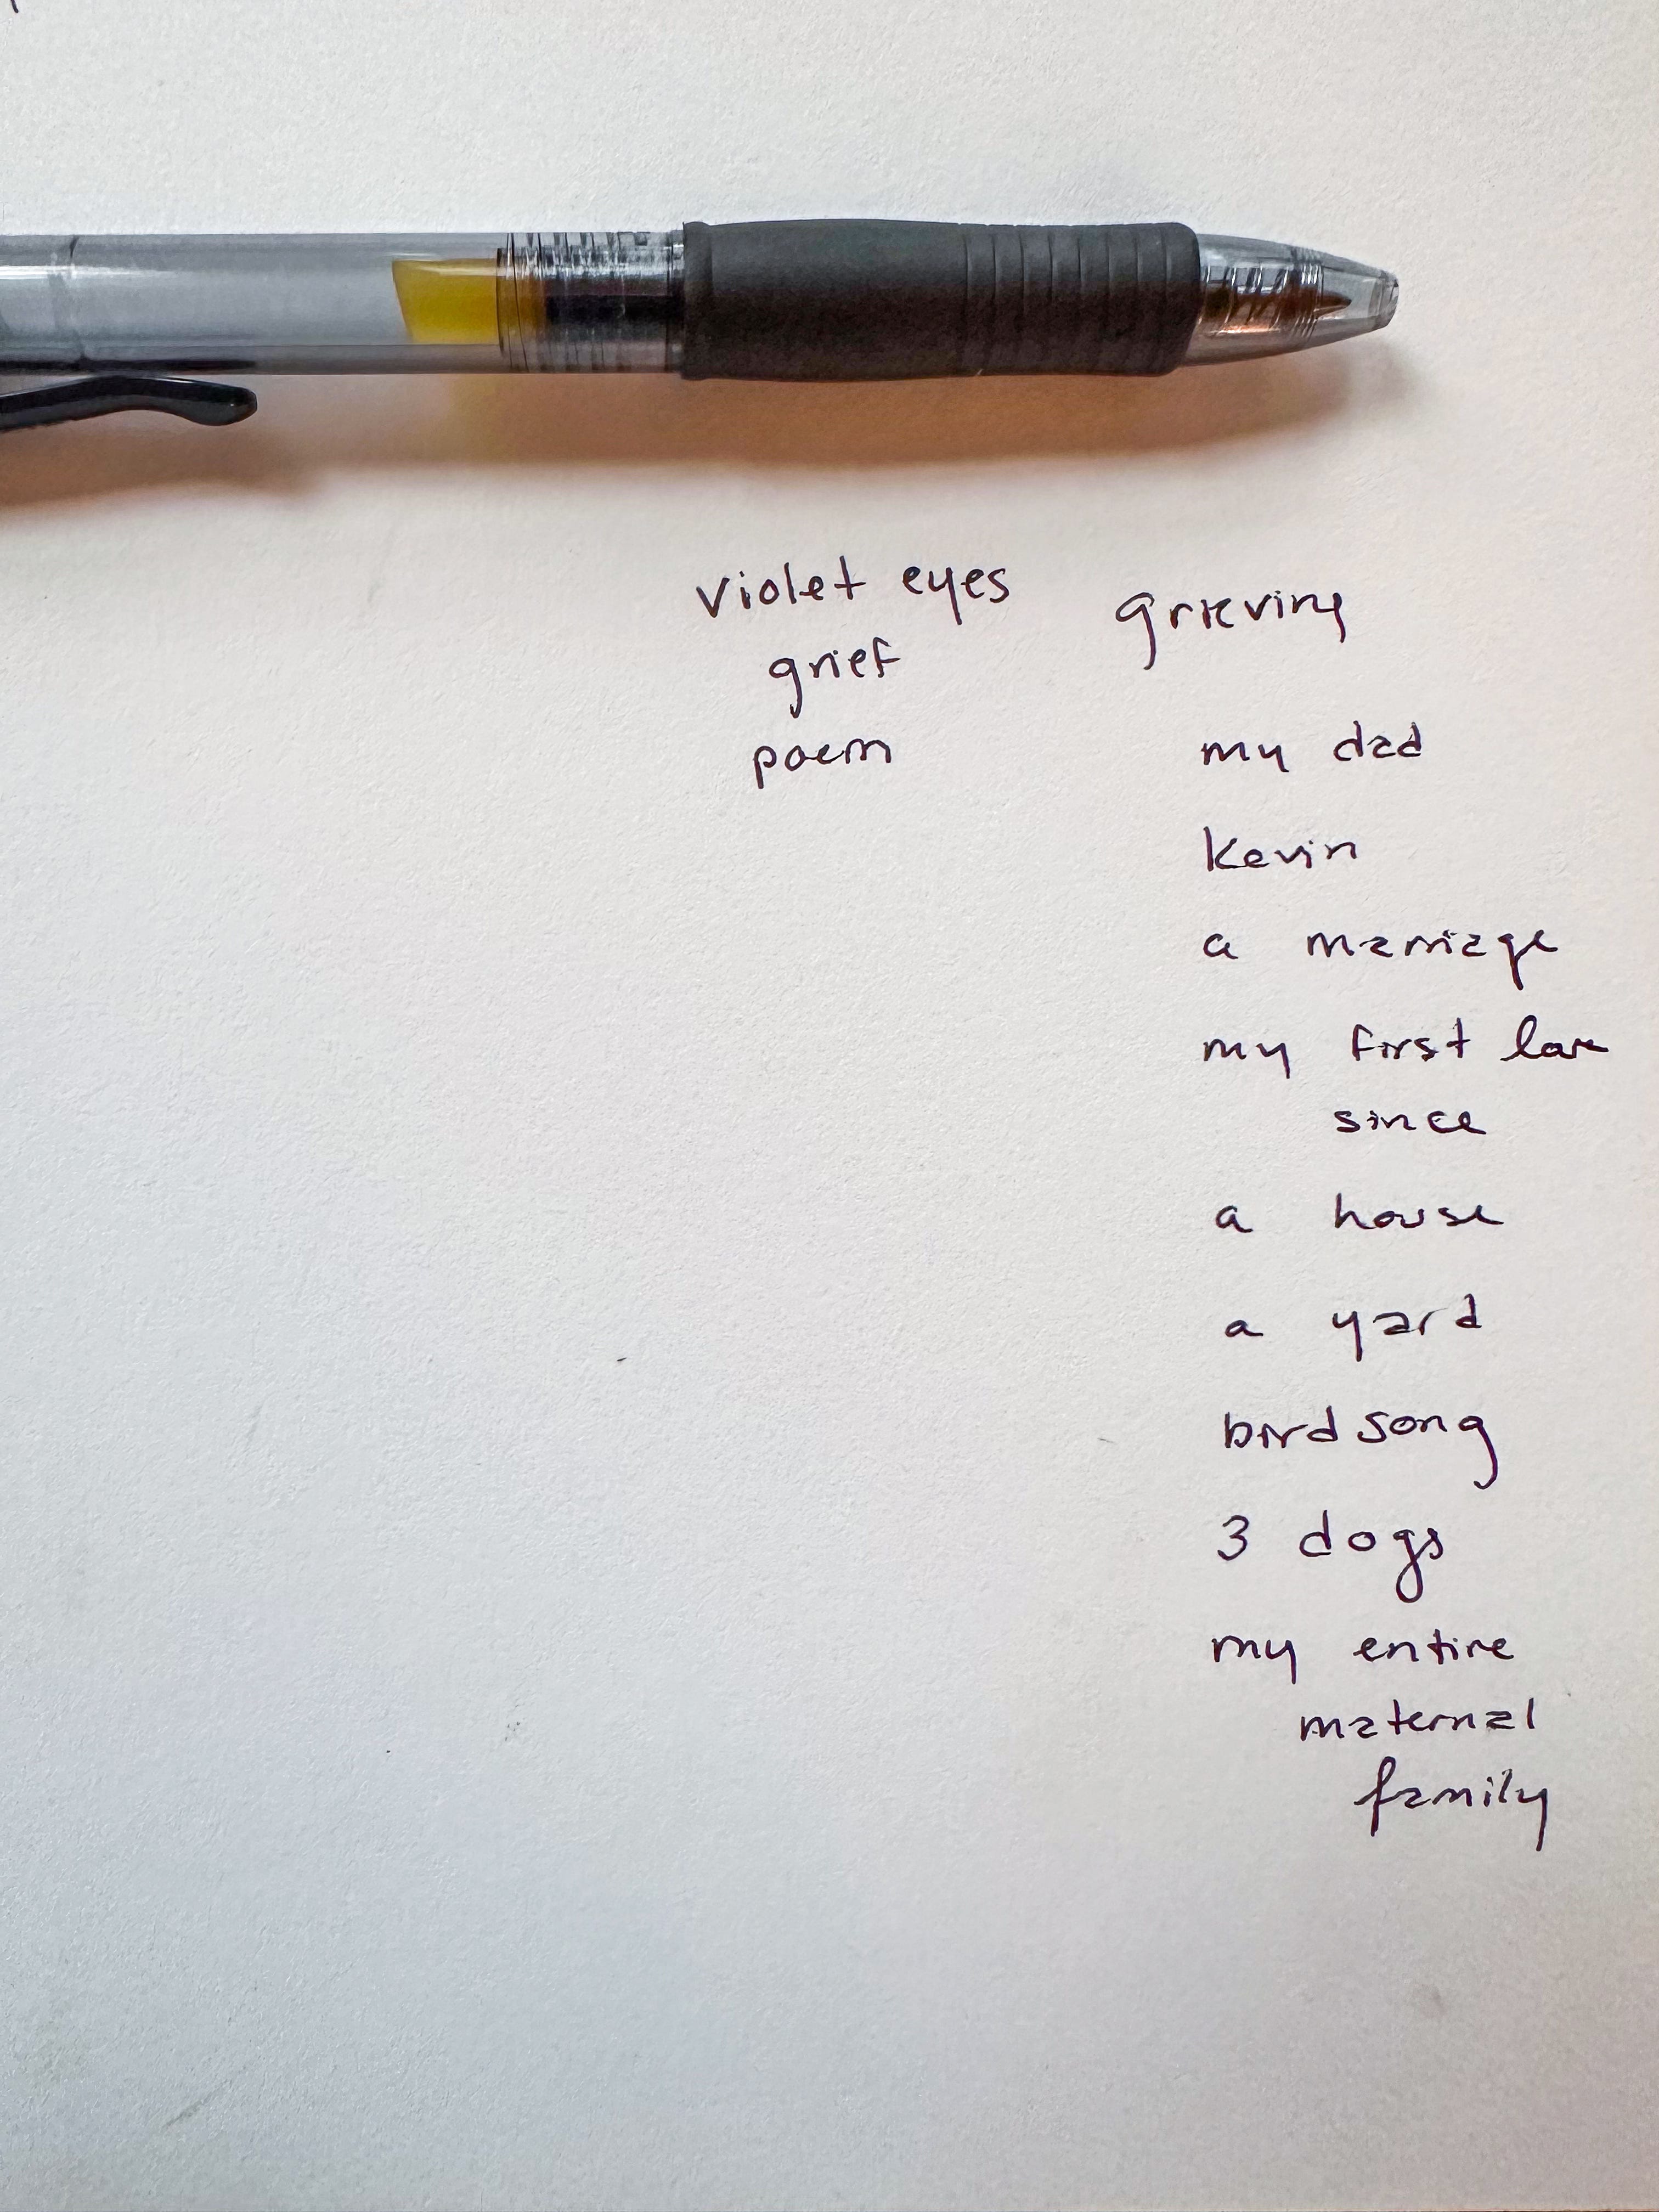 violet eyes
grief
poem
grieving
my dad
Kevin
a marriage
my first love
since
a house
a yard
birdsong
3 dogs
my entire
maternal
family